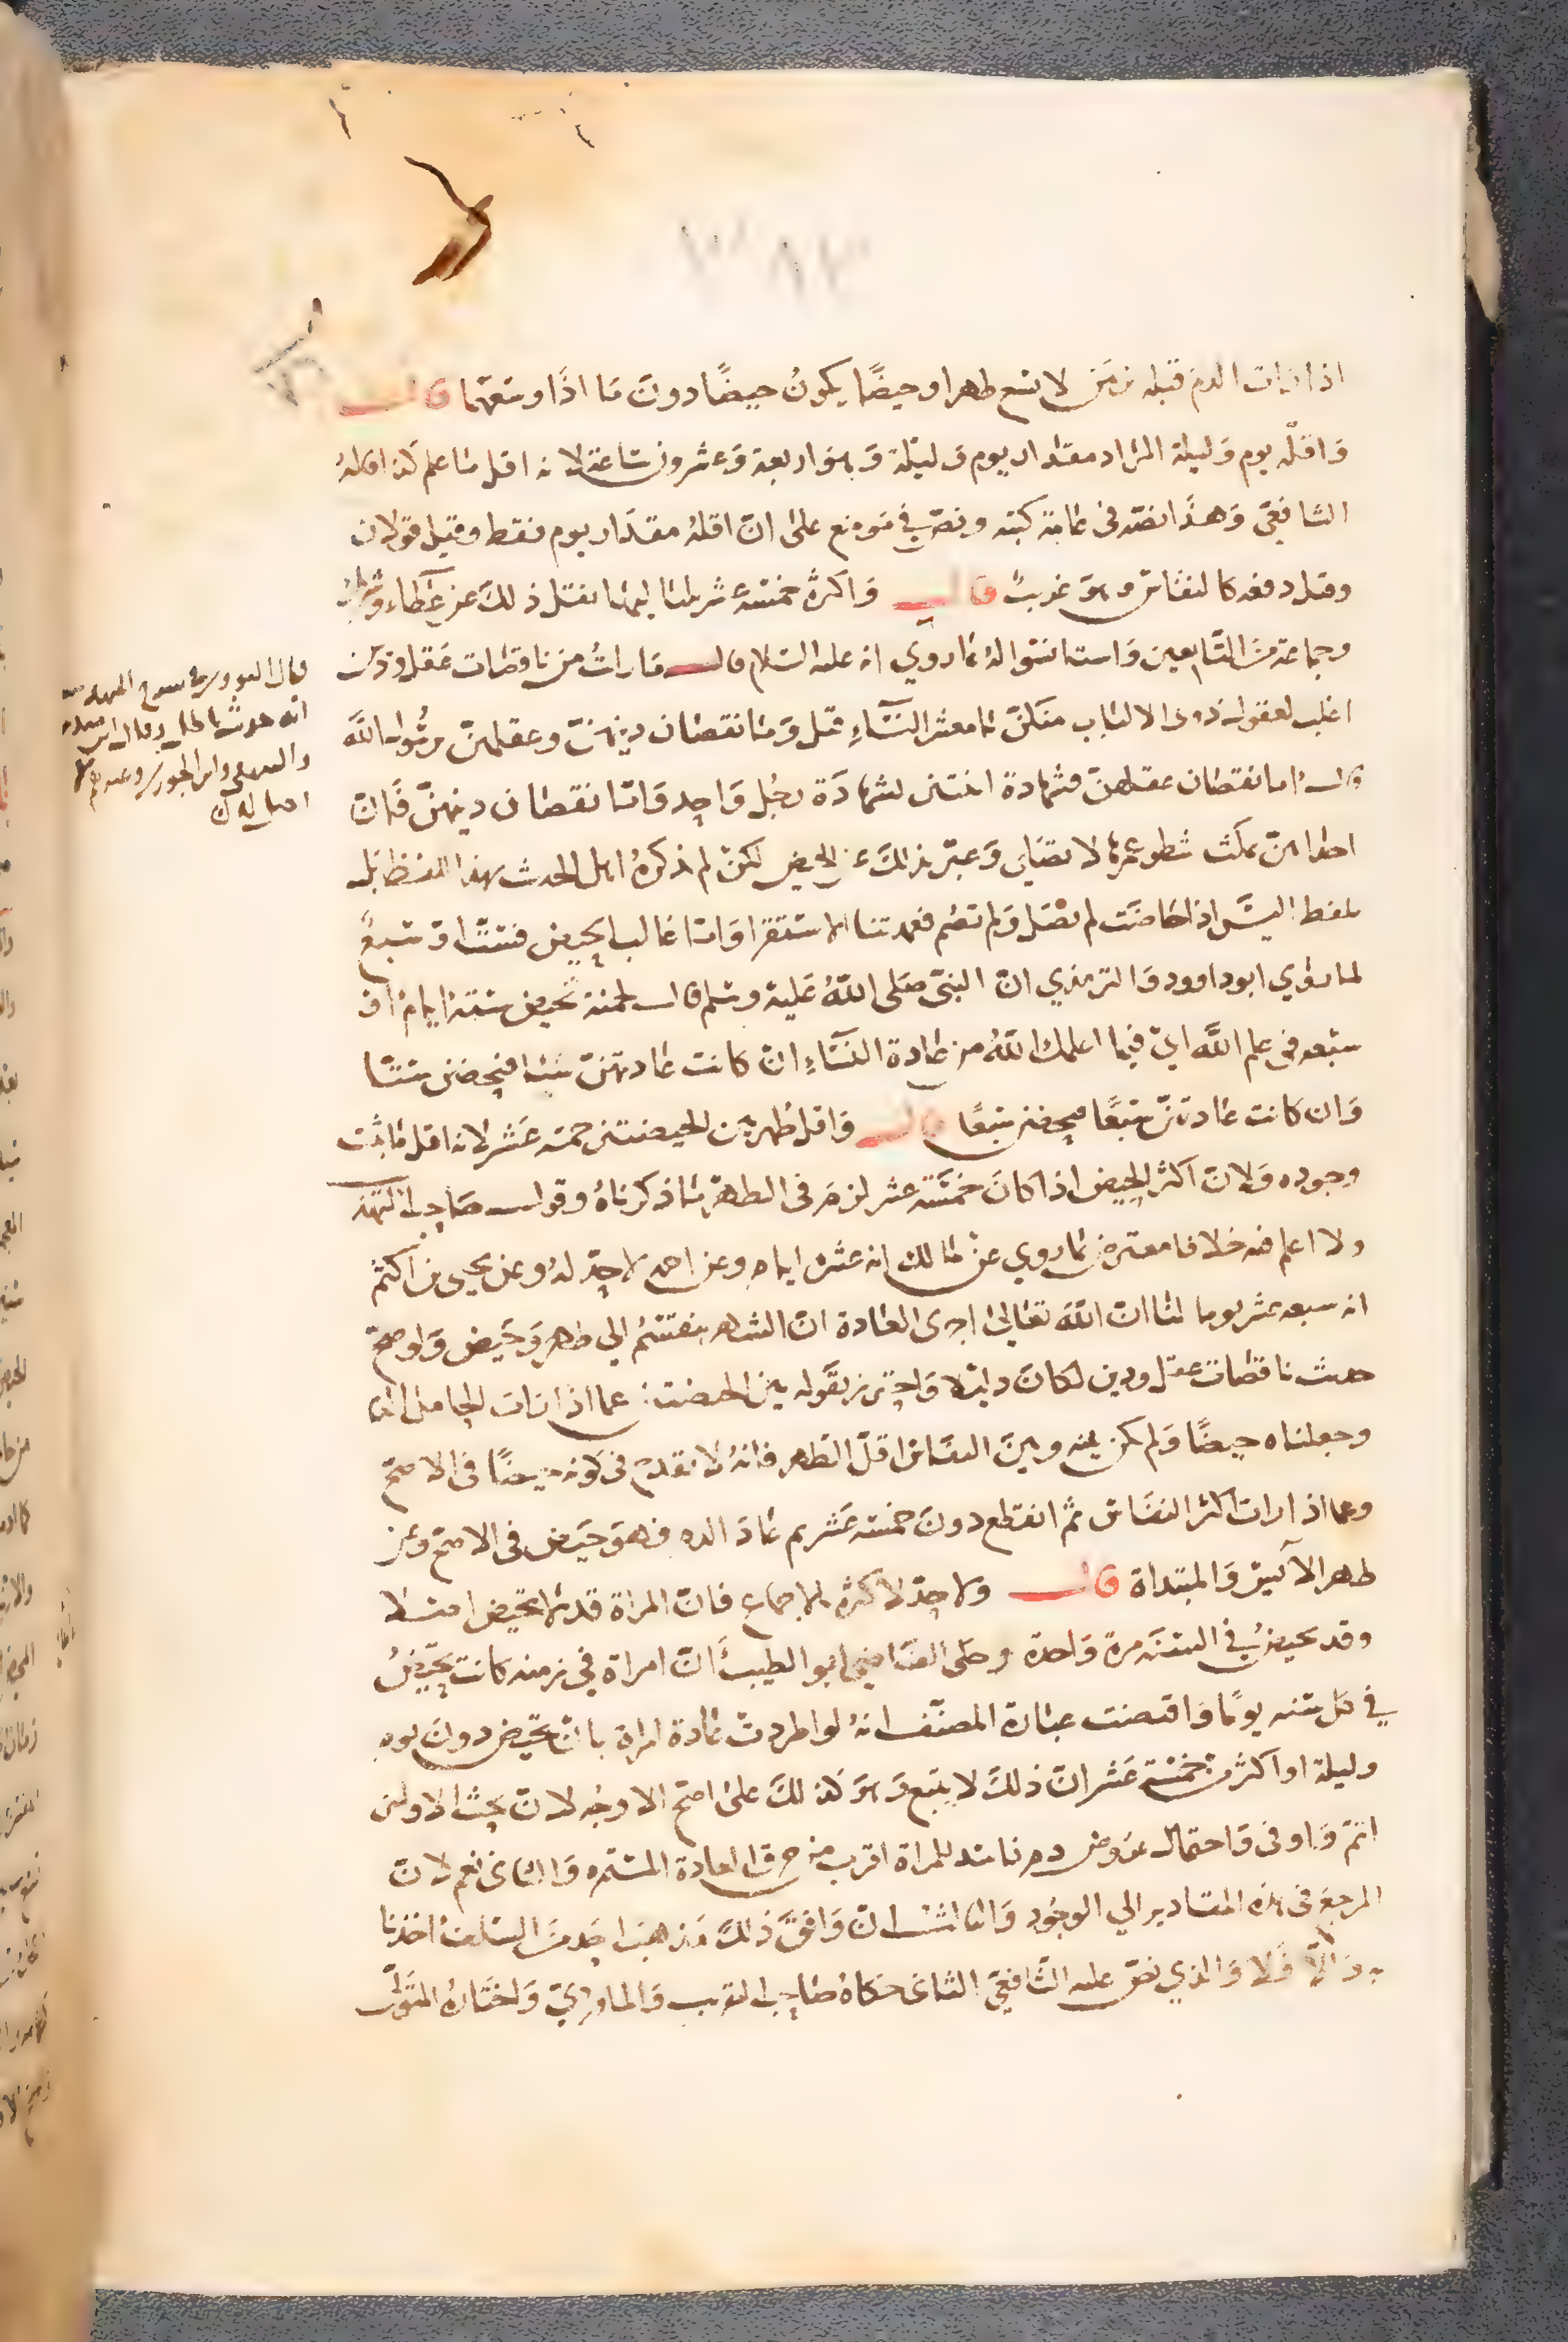 اذا رات الدم قبله زمن لا يسع طهرا وحيضًا يكونُ حيضًا دونَ ما اذا وسعهما قال
وَاقلّه يوم وَليلة المراد مقدار يوم وَليلة وَهو اربعة وَعشرون ساعة لانه اقل ما علم كذا قاله
الشافعيّ وَهذا نصّه في عامّة كتبه ونصّ في موضع على انّ اقلهُ مقدَار يوم فقط وقيل قولان
وقيل دفعه كالنفاس وهو غريبٌ قال وَاكثرهُ خمسةَ عشر بلياليها نقل ذلكَ عن عَطاء
وجماعة منَ التّابعين وَاستانسُوا لهُ بما روي انه عليه السّلام قال مَا راتُ من ناقصات عَقل ودين
اغلب لعقول ذوى الالباب منكنّ يا معشر النسَاءِ قيل وَما نقصَان دينهنّ وعقلهنّ يرسُول اللَّه
قال اما نقصَان عقلهنّ فشهادة اثنتين بشهادَة رجُل وَاحِد وَامّا نقصَان دينهنّ فَانّ
احداهنّ تمكث شطر عمرها لا تصَلى وَعبّر بذلكَ عن الحيض لكنّ لم يذكرهُ اهل الحديث بهذا اللفظ بَل
بلفظ اليسَ اذا حَاضَت لم تصَل وَلم تصُم فعمدتنا الاستقرا وَامّا غالب الحيض فستّ اوْ سَبعٌ
لما روَي ابو داوود وَالترمذي انّ النبيّ صَلى اللّهُ عَليه وسَلم قال لحمنة تحيض ستة ايامٍ او
سبعه في علم اللَّه ايْ فيما اعلمك اللّهُ من عادة النسَاءِ انْ كانت عَادتهنّ ستا فتحيضن ستّا
وَان كانت عَادتهنّ سَبعًا فتحيضن سَبعًا قال وَاقل طُهر بين الحيضتين خمسة عَشر لانه اقل ما ثبت
وجوده وَلانّ اكثر الحيض اذا كانَ خمسَة عشر لزمَ في الطّهر ما ذكرناهُ وقول صَاحب التهذيب
ولا اعلم فيه خلافا معترضٌ بما روي عنْ مَالك انه عشرة ايام وعن احمد لا حدّ لهُ وعن يحيى بن اكثم
انه سبعه عشر يوما لنا انّ اللّهَ تعَالىْ اجرى العَادة انّ الشهر ينقسمُ الي طهر وَحيض وَلو صحّ
حديث ناقصَات عقل ودين لكانَ دليلا وَاحترز بقوله بين الحيضتين عما اذا رات الحامل الدم
وجعلناه حيضًا وَلم يكن بينه وبينَ النفاس اقلّ الطهر فانهُ لا يقدح في كونه حيضًا في الاصحّ
وعما اذا رات اكثر النفاس ثم انقطع دونَ خمسة عَشر ثم عَادَ الدم فهوَ حيَض في الاصحّ وعن
طهر الآيس وَالمبتداة قال ولا حدّ لاكثره بالاجماع فانّ المراة قد لا تحيض اصلا
وقد تحيضُ في السَنة مرة وَاحدة وحكى القاضي ابو الطيب انّ امراة في زمنه كانت تحيضُ
في كل سَنه يومًا وَاقتضت عبَارة المصنّف انهُ لو اطردتْ عَادة امراة بانْ تحيض دونَ يوم
وليلة او اكثر من خمسَة عَشر انّ ذلكَ لا يتبع وَهوَ كذلكَ على اصح الاوجُه لانّ بحث الاولين
اتم وَاوفى وَاحتمَال عرُوض دم فاسد للمراة اقرب من خرق العادة المستمره وَالثاني نعم لانّ
المرجعَ في هذه المقادير الي الوجُود وَالثالث انْ وَافقَ ذلكَ مَذهبَ احَد منَ السَلف اخذنا
به وَالّا فَلا وَالذي نصّ عليه الشّافعيّ الثاني حَكاهُ صَاحب التقريب وَالماورديّ وَاختارهُ المتَولى